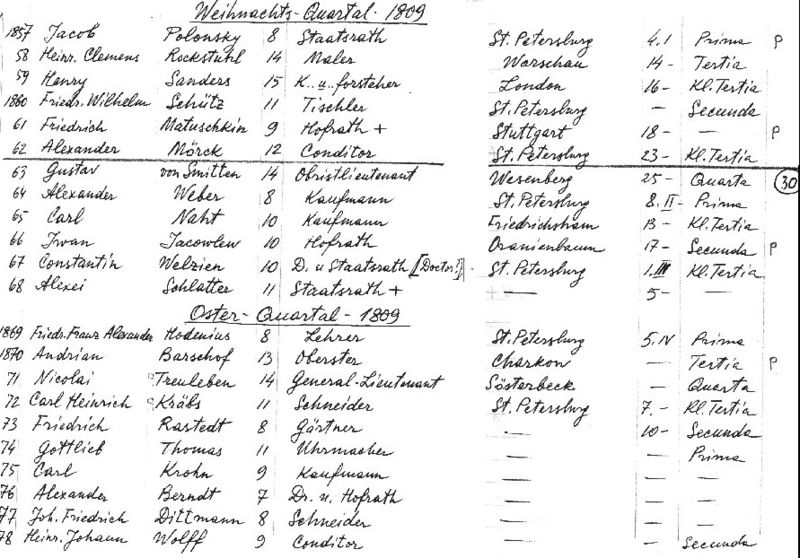 Weihnachts-Quartal-1809
1857 Jacob Polonsky 8 Staatsrath St. Petersburg 4.I Prima P
58 Heinr. Clemens Rockstuhl 14 Maler Warschau 14- Tertia
59 Henry Sanders 15 K. u. forsteher London 16- Kl. Tertia
1860 Friedr. Wilhelm Schütz 11 Tischler St. Petersburg — Secunda
61 Friedrich Matuschkin 9 Hofrath + Stuttgart 18- — P
62 Alexander Mörck 12 Conditor St. Petersburg 23- Kl. Tertia
63 Gustav von Smitten 14 Obristlieutenant Wesenberg 25- Quarta 30
64 Alexander Weber 8 Kaufmann St. Petersburg 8. II- Prima
65 Carl Naht 10 Kaufmann Friedrichsham 13- Kl. Tertia
66 Iwan Jacowlew 10 Hofrath Oranienbaum 17- Secunda P
67 Constantin Welzien 10 D. u Staatsrath [Doctor?] St. Petersburg 1. III Kl. Tertia
68 Alexei Schlatter 11 Staatsrath + — 5- —
Oster-Quartal-1809
1869 Friedr. Franz Alexander Hodenius 8 Lehrer St. Petersburg 5. IV Prima
1870 Andrian Barschof 13 Oberster Charkow — Tertia P
71 Nicolai Treuleben 14 General-Lieutenant Sösterbeck — Quarta
72 Carl Heinrich Kräbs 11 Schneider St. Petersburg 7.- Kl. Tertia
73 Friedrich Rastedt 8 Gärtner — 10- Secunda
74 Gottlieb Thomas 11 Uhrmacher — — Prima
75 Carl Krohn 9 Kaufmann — — —
76 Alexander Berndt 7 Dr. u. Hofrath — — —
77 Joh. Friedrich Dittmann 8 Schneider — — —
78 Heinr. Johann Wolff 9 Conditor — — Secunda